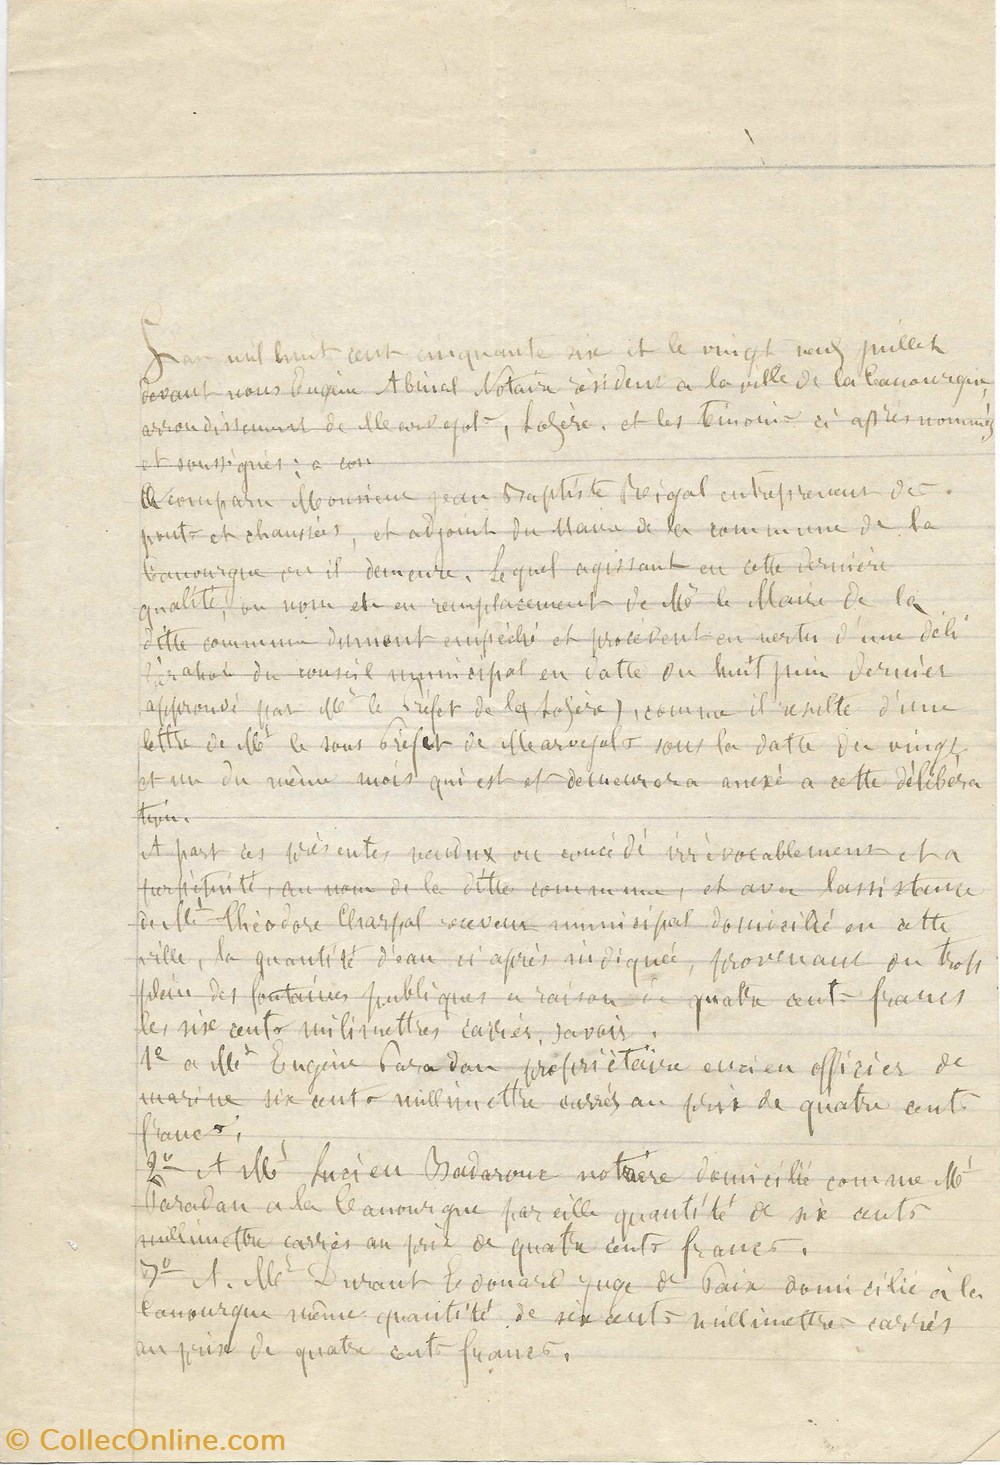 Lan mil huit cent cinquante six et le vingt neuf juillet
devant nous Eugène Abinal Notaire résident a la ville de la Canourgue,
arrondissement de Marvejols, Lozère. et les témoins ci après nommés
et soussignés; a con
A comparu Monsieur jean Baptiste Reigal entrepreneur de
ponts et chaussées, et adjoint du Maire de la commune de la
Canourgue ou il demeure. Lequel agissant en cette dernière
qualité, au nom et en remplacement de Mr le Maire de la
ditte commune dument empêché et procédent en vertu d'une déli
bération du conseil municipal en datte du huit juin dernier
(approuvé par Mr le Préfet de la Lozère), comme il resulte d'une
lettre de Mr le sous Préfet de Marvejols sous la datte du vingt
et un du même mois qui est et demeurera anexé a cette délibéra
tion.
A part ces présentes vendux ou concédé irrévocablement et a
perpétuité, au nom de la ditte commune, et avec lassistance
de Mr Théodore Charpal receveur municipal domicilié en cette
ville, la quantité d'eau ci après indiquée, provenant du trop
plein des fontaines publiques a raison de quatre cents francs
les six cents milimettres carrés, savoir.
1e a Mr Eugène Paradan propriètaire encien officier de
marine six cents millimettre carrés au prix de quatre cents
francs.
2e A Mr Lucien Badaroux notaire domicilié comme Mr
Paradan a la Canourgue pareille quantité de six cents
millimettre carrés au prix de quatre cents francs.
3e A. Mr Durant Edouard juge de Paix domicilié à la
Canourgue même quantité de six cents millimettres carrés
au prix de quatre cents francs.
© CollecOnline.com